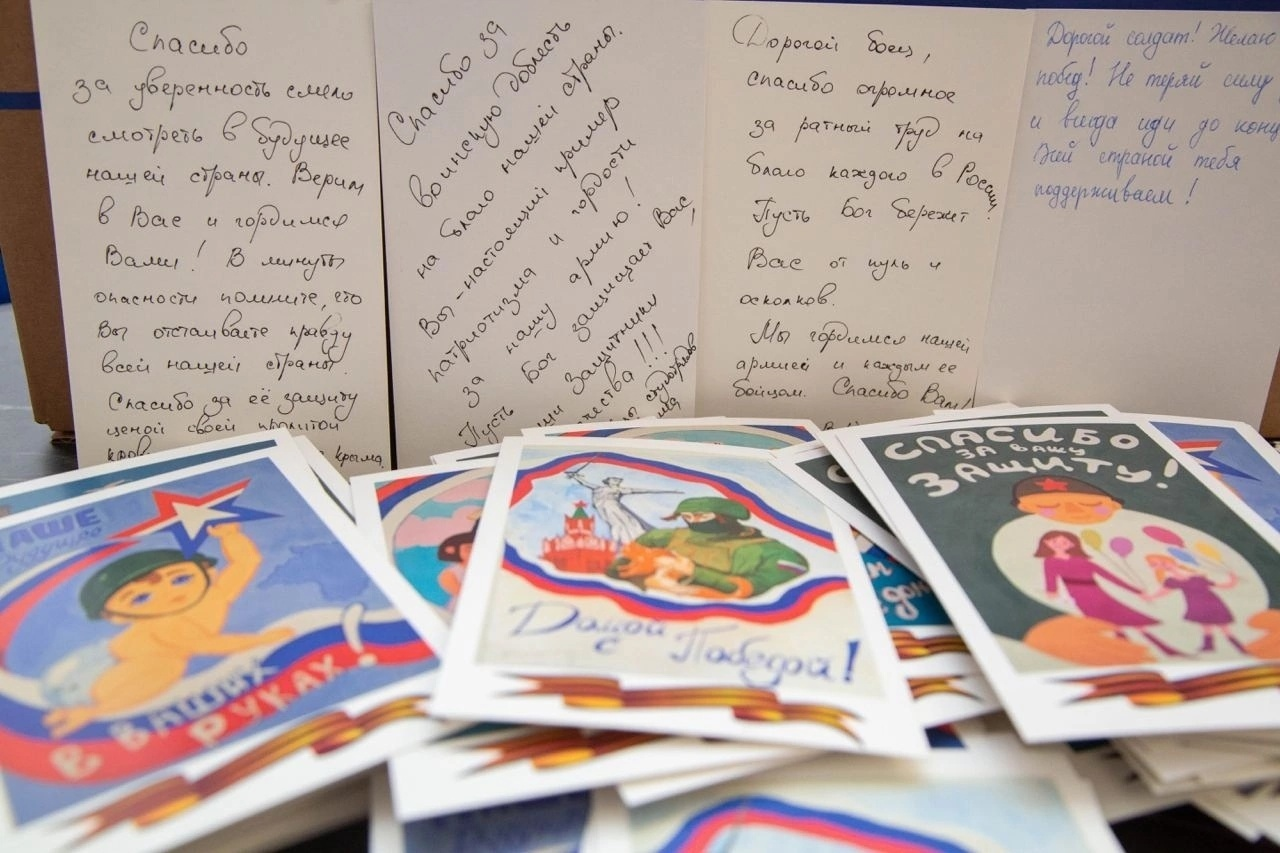 Спасибо
за уверенность смело
смотреть в будущее
нашей страны. Верим
в Вас и гордимся
Вами! В минуты
опасности помните, что
Вы отстаиваете правду
всей нашей страны.
Спасибо за её защиту
ценой своей пролитой
Крыма
Спасибо за
воинскую доблесть
на благо нашей страны.
Вы - настоящий пример
патриотизма и гордости
за нашу армию!
Пусть Бог защищает Вас,
Защитники
!!!
Дорогой боец,
спасибо огромное
за ратный труд на
благо каждого в России.
Пусть Бог бережет
Вас от пуль и
осколков.
Мы гордимся нашей
армией и каждым ее
бойцом. Спасибо Вам!
Дорогой солдат! Желаю
побед! Не теряй силу
и всегда иди до конц
Всей страной тебя
поддерживаем!
НАШЕ
будущее
В ВАШИХ
РУКАХ!
Домой
с Победой!
СПАСИБО
ЗА ВАШУ
ЗАЩИТУ!